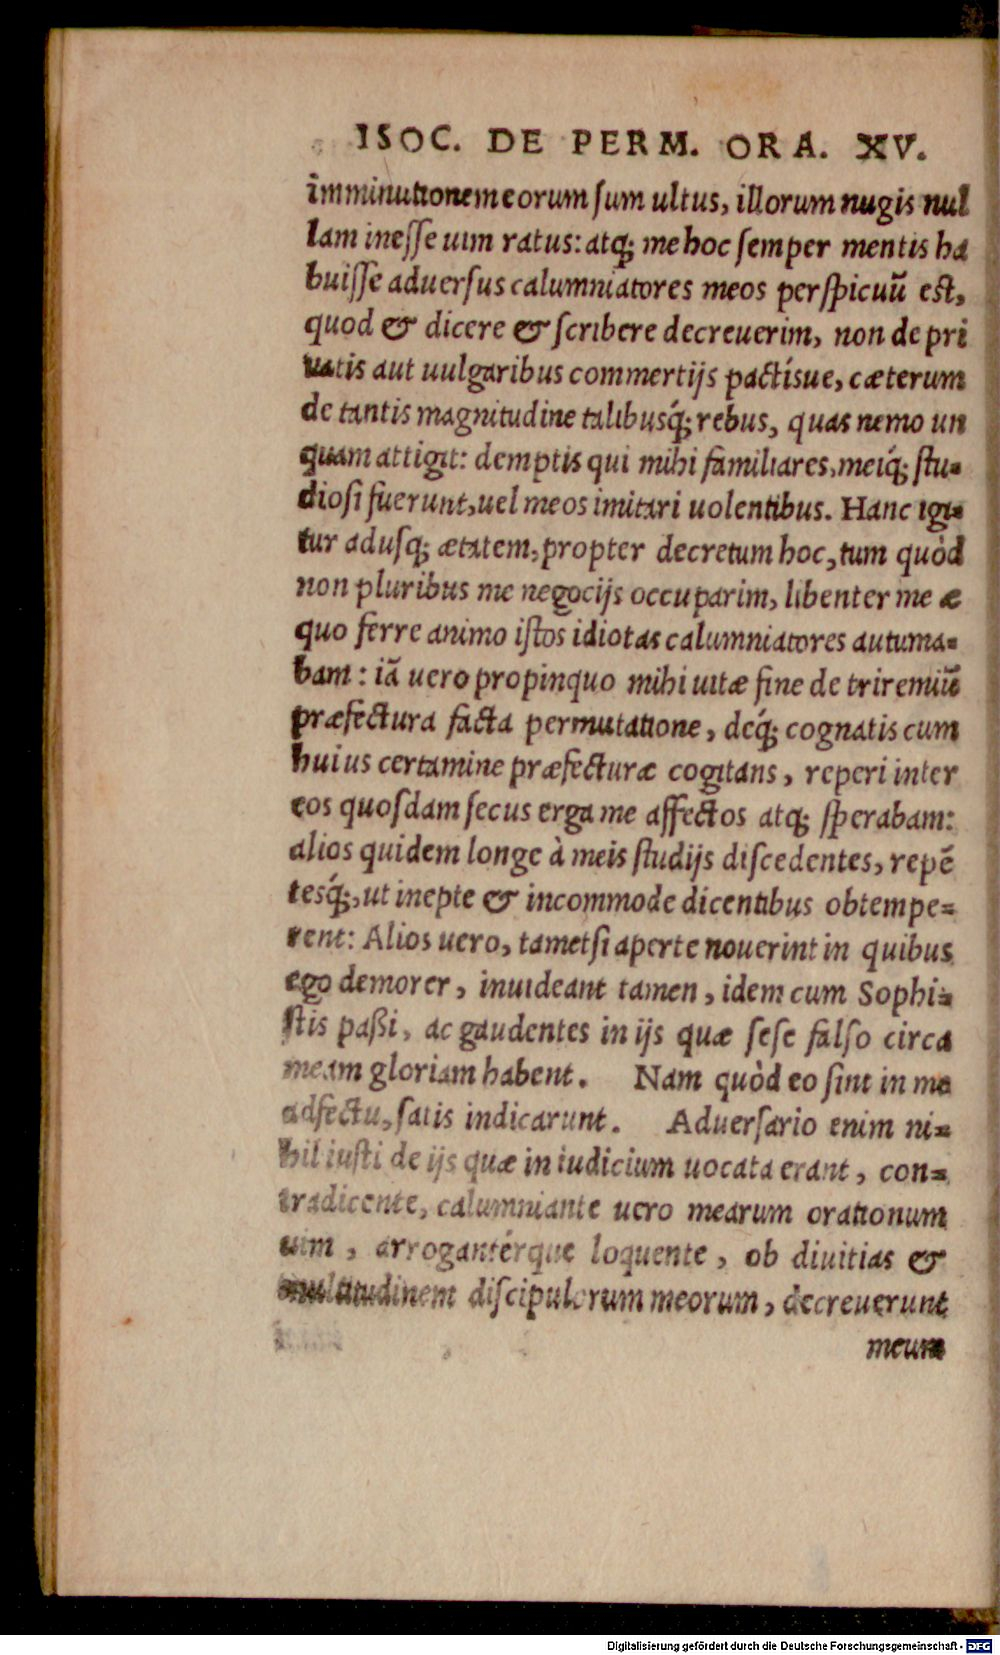 ISOC. DE PERM. ORA. XV.
imminutionem eorum sum ultus, illorum nugis nul
lam inesse uim ratus: atq; me hoc semper mentis ha
buisse aduersus calumniatores meos perspicuũ est,
quod & dicere & scribere decreuerim, non de pri
uatis aut uulgaribus commertijs pactísue, cæterum
de tantis magnitudine talibusq́; rebus, quas nemo un
quam attigit: demptis qui mihi familiares, meiq́; stu-
diosi fuerunt, uel meos imitari uolentibus. Hanc igi-
tur adusq; ætatem, propter decretum hoc, tum quòd
non pluribus me negocijs occuparim, libenter me æ
quo ferre animo istos idiotas calumniatores autuma-
bam: iã uero propinquo mihi uitæ fine de triremiũ
præfectura facta permutatione, deq́; cognatis cum
huius certamine præfecturæ cogitans, reperi inter
eos quosdam secus erga me affectos atq; sperabam:
alios quidem longe à meis studijs discedentes, repẽ
tesq́;, ut inepte & incommode dicentibus obtempe-
rent: Alios uero, tametsi aperte nouerint in quibus
ego demorer, inuideant tamen, idem cum Sophi-
stis paßi, ac gaudentes in ijs quæ sese falso circa
meam gloriam habent. Nam quòd eo sint in me
adfectu, satis indicarunt. Aduersario enim ni-
hil iusti de ijs quæ in iudicium uocata erant, con-
tradicente, calumniante uero mearum orationum
uim, arrogantérque loquente, ob diuitias &
multitudinem discipulorum meorum, decreuerunt
meum
Digitalisierung gefördert durch die Deutsche Forschungsgemeinschaft - DFG